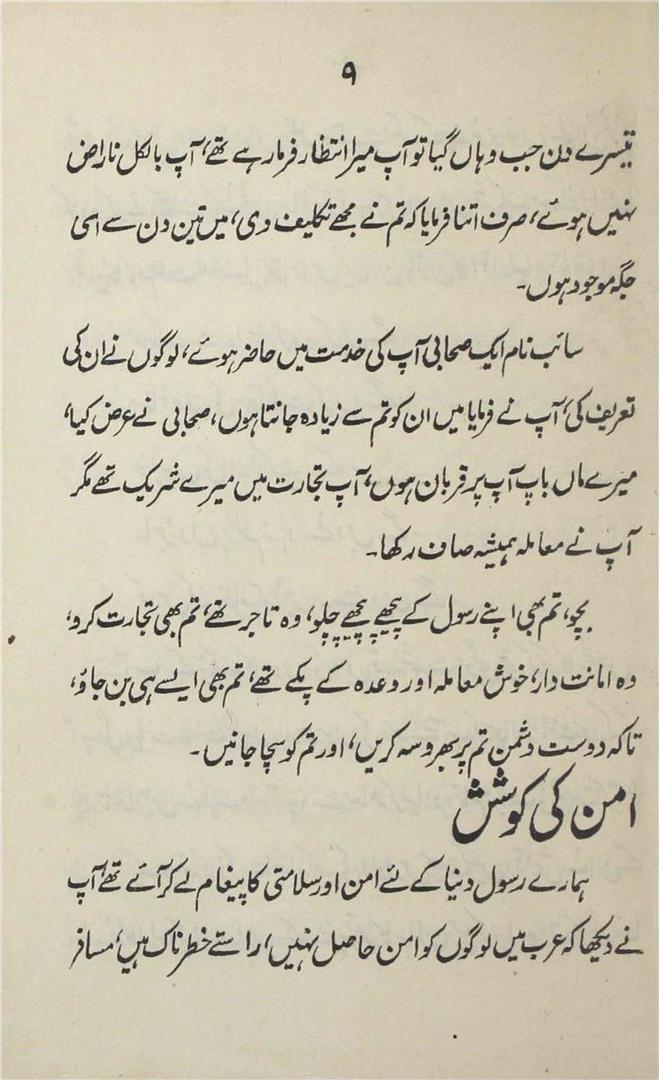 ۹
تیسرے دن جب وہاں گیا تو آپ میرا انتظار فرما رہے تھے، آپ بالکل ناراض
نہیں ہوئے، صرف اتنا فرمایا کہ تم نے مجھے تکلیف دی، میں تین دن سے اسی
جگہ موجود ہوں۔
سائب نام ایک صحابی آپ کی خدمت میں حاضر ہوئے، لوگوں نے ان کی
تعریف کی، آپ نے فرمایا میں ان کو تم سے زیادہ جانتا ہوں، صحابی نے عرض کیا،
میرے ماں باپ آپ پر قربان ہوں، آپ تجارت میں میرے شریک تھے مگر
آپ نے معاملہ ہمیشہ صاف رکھا۔
بچو، تم بھی اپنے رسول کے پیچھے پیچھے چلو، وہ تاجر تھے، تم بھی تجارت کرو،
وہ امانت دار، خوش معاملہ اور وعدہ کے پکے تھے، تم بھی ایسے ہی بن جاؤ،
تاکہ دوست دشمن تم پر بھروسہ کریں، اور تم کو سچا جانیں۔
امن کی کوشش
ہمارے رسول دنیا کے لئے امن اور سلامتی کا پیغام لے کر آئے تھے، آپ
نے دیکھا کہ عرب میں لوگوں کو امن حاصل نہیں، راستے خطرناک ہیں، مسافر